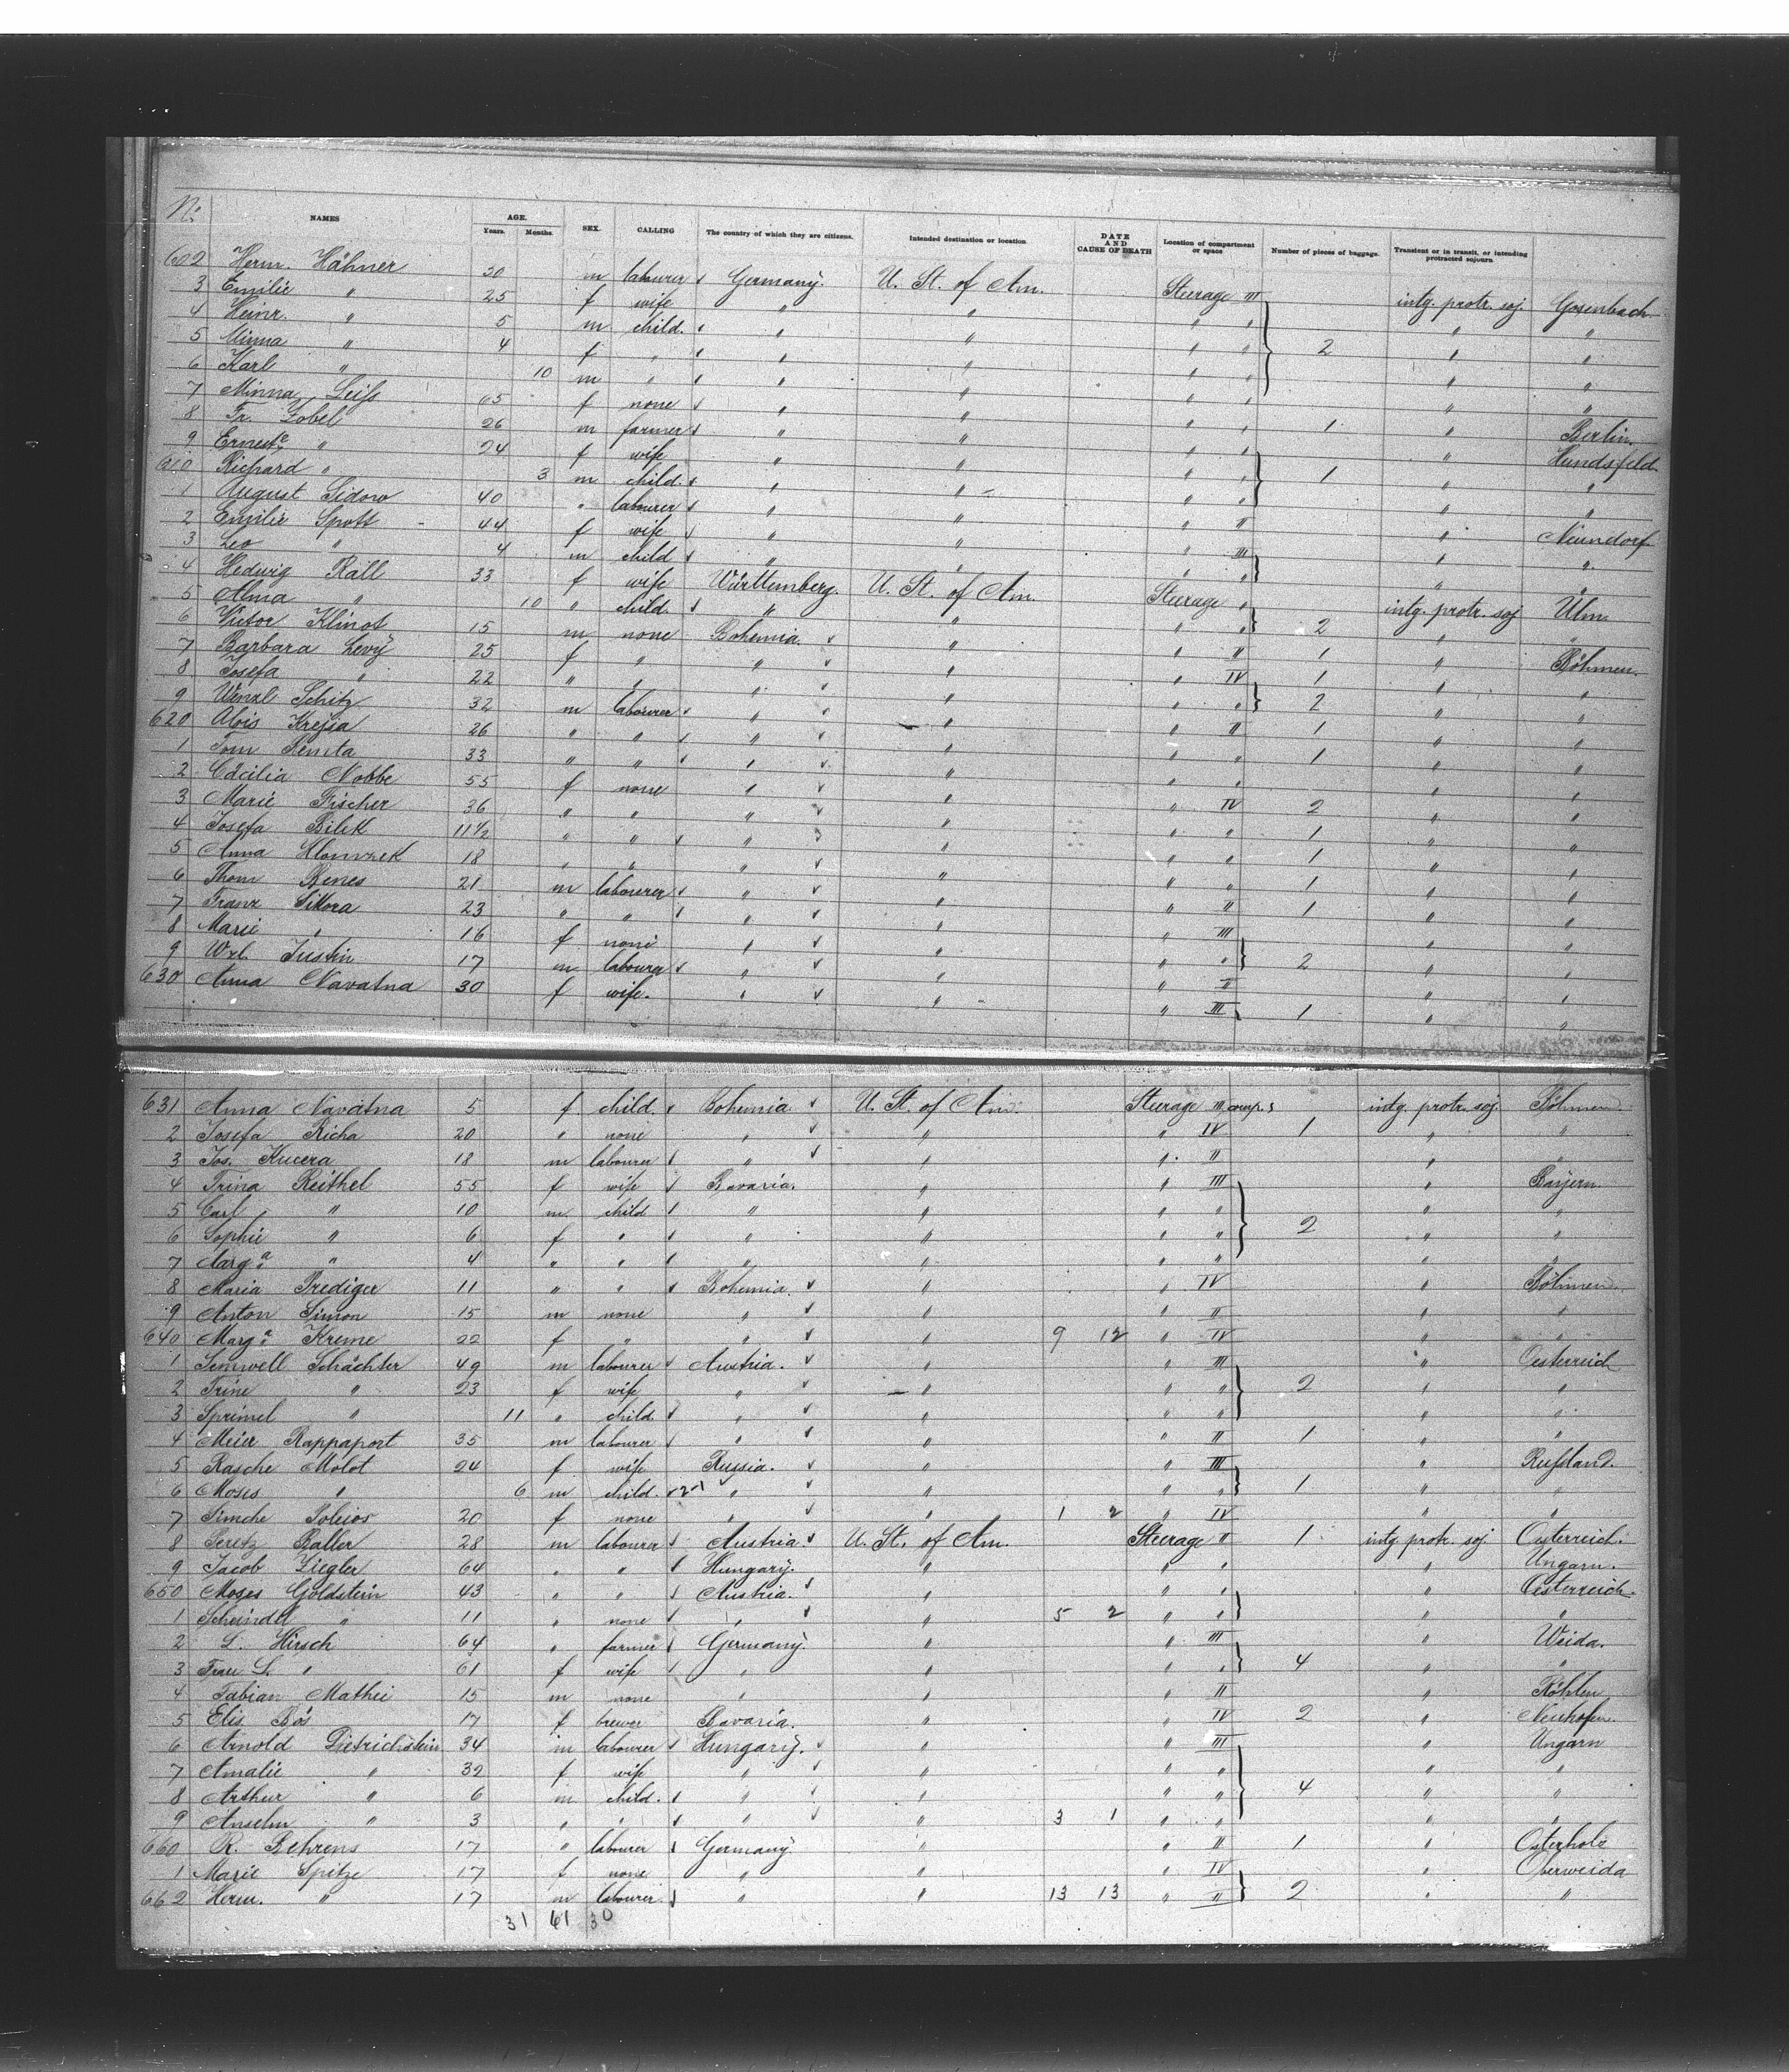 No. NAMES AGE. Years. Months. SEX. CALLING The country of which they are citizens. Intended destination or location DATE AND CAUSE OF DEATH Location of compartment or space Number of pieces of baggage. Transient or in transit, or intending protracted sojourn
602 Herm. Hähner 30 m labourer Germany. U. St. of Am. Steerage III intg. protr. soj. Gosenbach
3 Emilie " 25 f wife " " " " " "
4 Heinr. " 5 m child. " " " " 2 " "
5 Minna " 4 f " " " " " " "
6 Karl " 10 m " " " " " " "
7 Minna Leiß 65 f none " " " " 1 " Berlin.
8 Fr. Zobel 26 m farmer " " " " " Hundsfeld.
9 Ernest.e " 24 f wife " " " " 1 " "
610 Richard " 3 m child. " " " " " "
1 August Sidow 40 " labourer " " " II " Neundorf
2 Emilie Spott 44 f wife " " " III " "
3 Leo " 4 m child " " " " " "
4 Hedwig Rall 33 f wife Württemberg. U. St. of Am. Steerage " 2 intg. protr. soj Ulm
5 Alma " 10 " child. " " " " " "
6 Victor 15 m none Bohemia " " II 1 " Böhmen.
7 Barbara Levý 25 f " " " " IV 1 " "
8 Josefa " 22 " " " " " " 2 " "
9 Wenzl Schitz 32 m labourer " " " II 1 " "
620 Alois Krejsa 26 " " " " " " 1 " "
1 Tom 33 " " " " " " " "
2 Cäcilia Nobbe 55 f none " " " IV 2 " "
3 Marie Fischer 36 " " " " " " 1 " "
4 Josefa Bilek 11 1/2 " " " " " " 1 " "
5 Anna 18 " " " " " " 1 " "
6 Thom Benes 21 m labourer " " " II 1 " "
7 Franz Sikora 23 " " " " " III " "
8 Marie " 16 f none " " " " 2 " "
9 Wzl. Justin 17 m labourer " " " II " "
630 Anna Navatna 30 f wife. " " " III 1 " "
631 Anna Navatna 5 f child. Bohemia U. St. of Am. Steerage III comp. intg. protr. soj. Böhmen.
2 Josefa Richa 20 " none " " " IV 1 " "
3 Jos. Kucera 18 m labourer " " " II " "
4 Trina Reithel 55 f wife Bavaria. " " III " Bayern.
5 Carl " 10 m child " " " " " "
6 Sophie " 6 f " " " " " 2 " "
7 Marg.a " 4 " " " " " " " "
8 Maria Prediger 11 " " Bohemia. " " IV " Böhmen.
9 Anton Simon 15 m none " " " II " "
640 Marg.a Kreme 22 f " " " 9 12 " IV " "
1 Semwell Schächter 49 m labourer Austria. " " III " Oesterreich
2 Trine " 23 f wife " " " " 2 " "
3 Sprimel " 11 " child. " " " " " "
4 Meier Rappaport 35 m labourer " " " II 1 " "
5 Rasche Molot 24 f wife Russia. " " III " Rußland.
6 Moses " 6 m child. 2-1 " " " " 1 " "
7 Simche 20 f none " " 1 2 " IV " "
8 Seretz Raller 28 m labourer Austria U. St. of Am. Steerage II 1 intg. protr. soj. Oesterreich.
9 Jacob Ziegler 64 " " Hungary. " " " " Ungarn.
650 Moses Goldstein 43 " " Austria. " " " " Oesterreich.
1 Scheindel " 11 " none " " 5 2 " " " "
2 L. Hirsch 64 " farmer Germany. " " III " Weida.
3 Frau L. " 61 f wife " " " " 4 " "
4 Fabian Mathei 15 m none " " " II " Röhlen
5 Elis Bös 17 f brewer Bavaria. " " IV 2 " Neuhofen
6 Arnold Dietrichstein 34 m labourer Hungary. " " III " Ungarn
7 Amalie " 32 f wife " " " " " "
8 Arthur " 6 m child. " " " " 4 " "
9 Anselm " 3 " " " " 3 1 " " " "
660 R. Behrens 17 " labourer Germany. " " II 1 " Osterholz
1 Marie Spitze 17 f none " " " IV " Oberweida
662 Herm. " 17 m labourer. " " 13 13 " II 2 " "
31 61 30